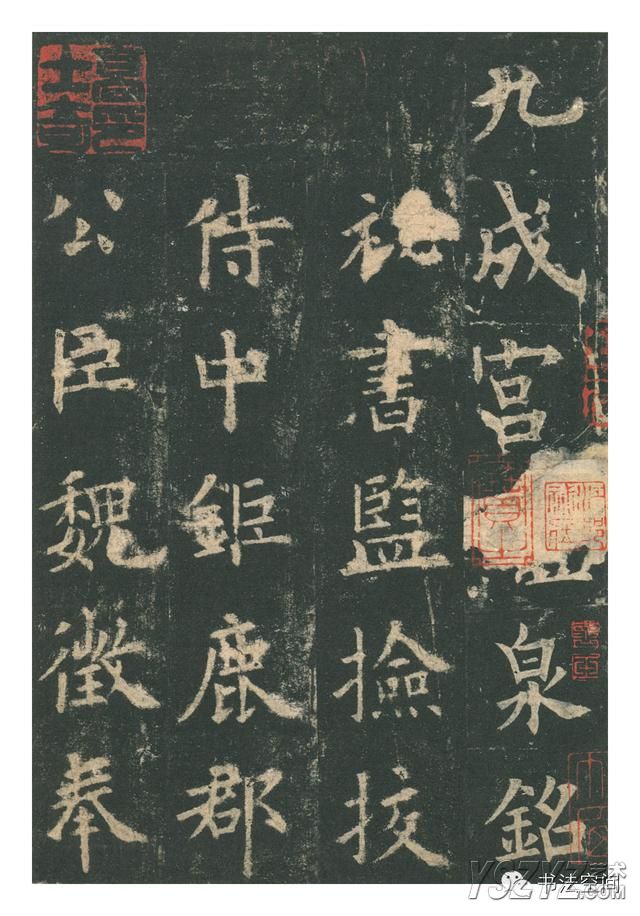 九成宮泉銘
祕書監撿挍
侍中鉅鹿郡
公臣魏徵奉
书法空间
YSZYZ